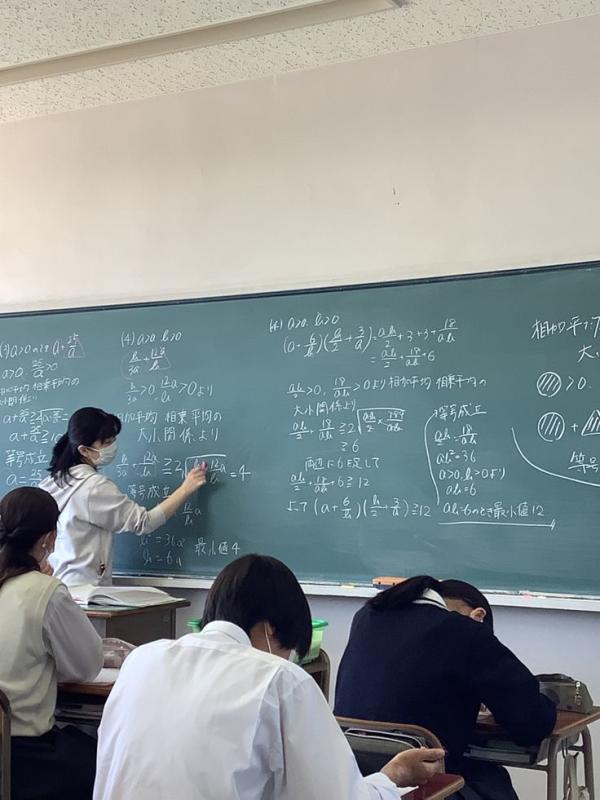 a>0, 25/a>0
相加平均 相乗平均の
等号成立
(4) a>0 b>0
b/3a + 12a/b
b/3a>0, 12a/b>0より
相加平均 相乗平均の
大小関係より
b/3a + 12a/b ≧2√ =4
等号成立
b²=36a²
b=6a 最小値4
a>0 b>0
(a+6/b)(b/2+3/a)=ab/2+3+3+18/ab
=ab/2+18/ab+6
ab/2>0, 18/ab>0より相加平均 相乗平均の
大小関係より
ab/2+18/ab≧2√(ab/2×18/ab)
≧6
両辺に6を足して
ab/2+18/ab+6≧12
よって (a+6/b)(b/2+3/a)≧12
等号成立
ab/2=18/ab
a>0, b>0より
ab=6
ab=6のとき最小値12
相加平
>0.
等号